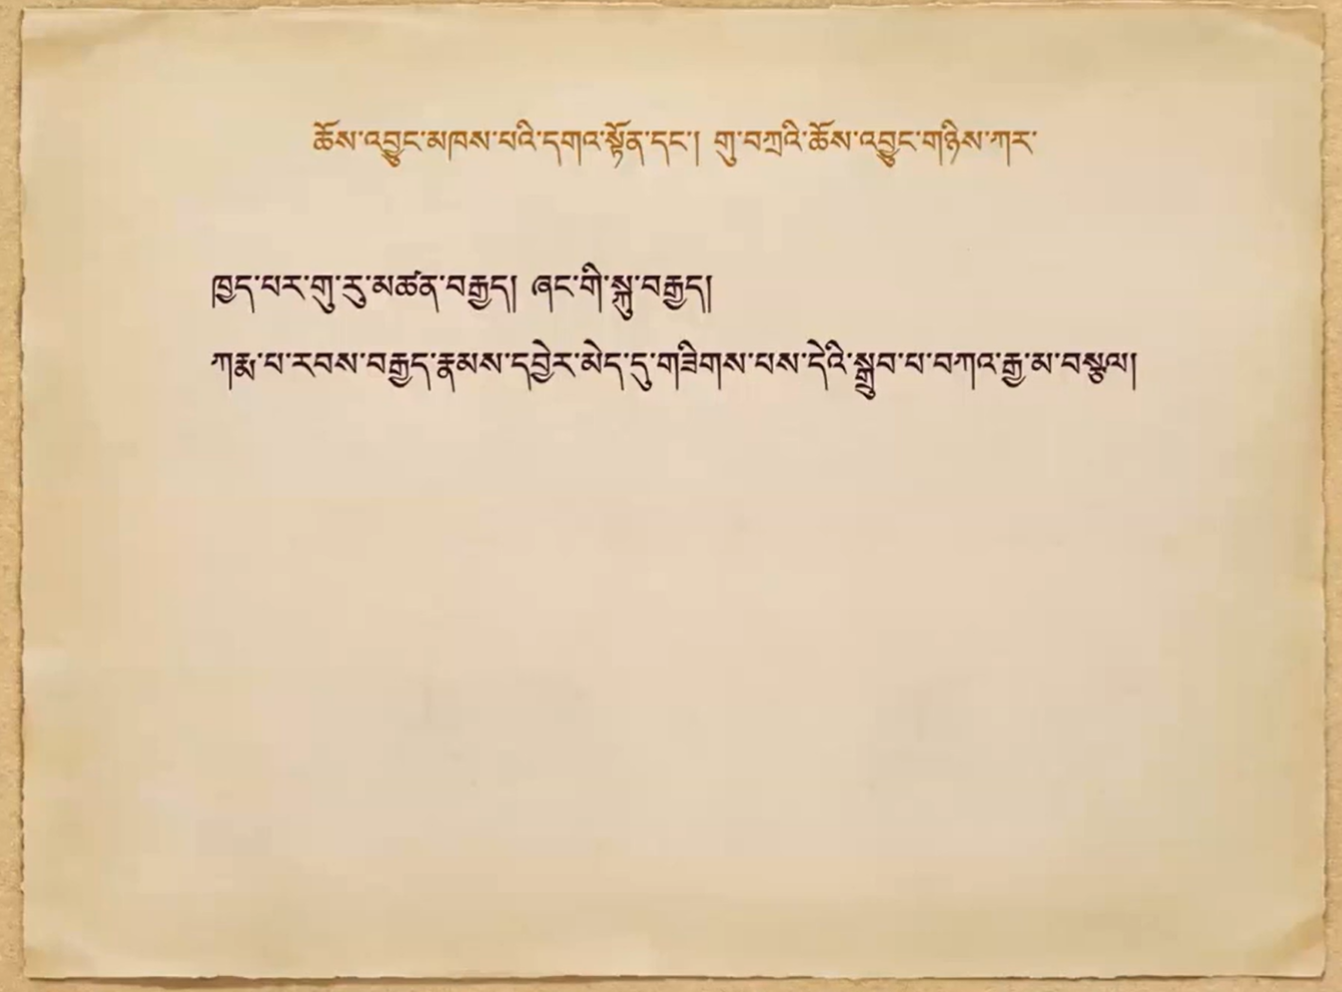 ཆོས་འབྱུང་མཁས་པའི་དགའ་སྟོན་དང་། གུ་བཀྲའི་ཆོས་འབྱུང་གཉིས་ཀར་
ཁྱད་པར་གུ་རུ་མཚན་བརྒྱད། ཞང་གི་སྐུ་བརྒྱད།
ཀརྨ་པ་རབས་བརྒྱད་རྣམས་དབྱེར་མེད་དུ་གཟིགས་པས་དེའི་སྒྲུབ་པ་བཀའ་རྒྱ་མ་བསྩལ།